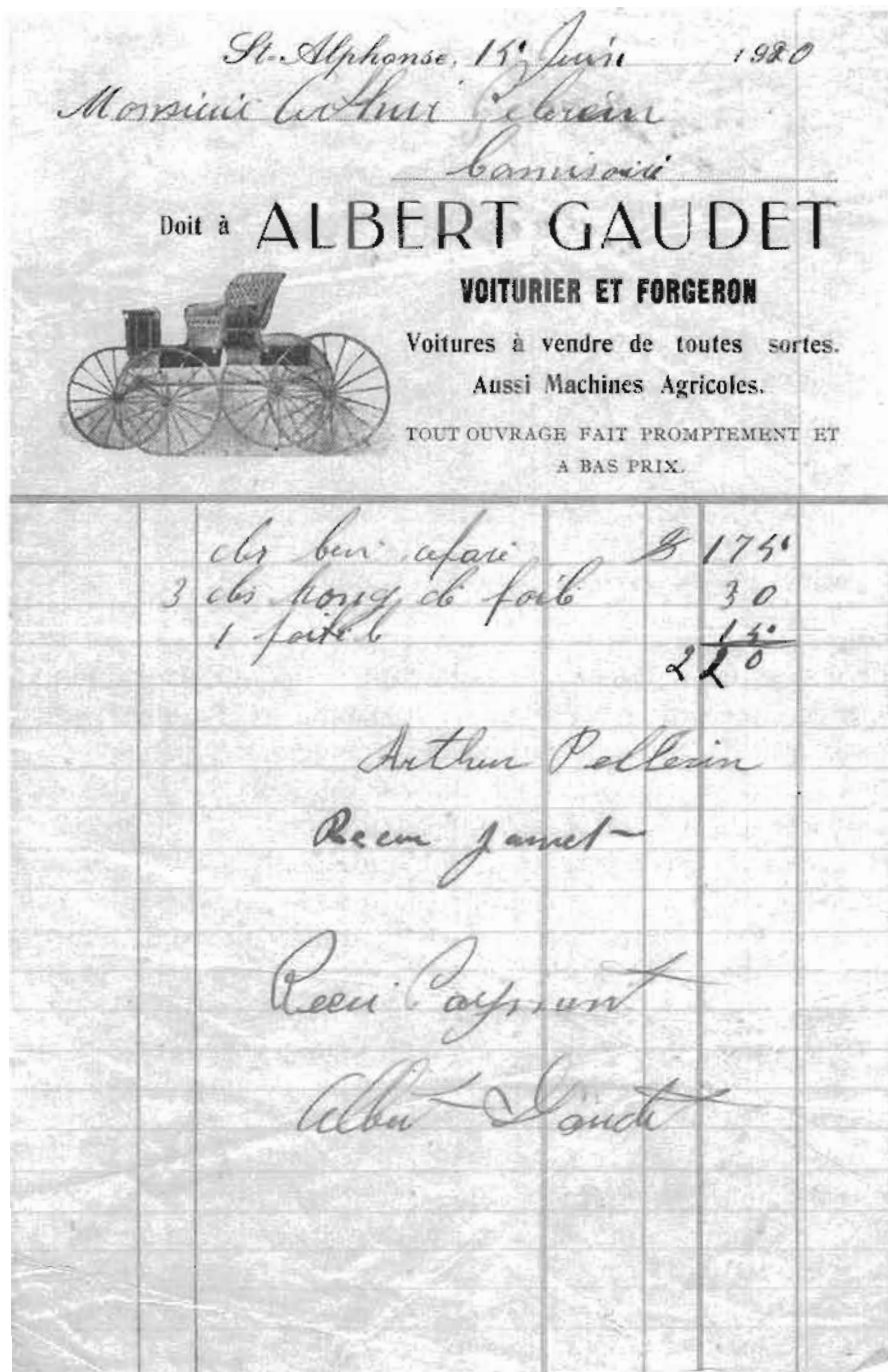 St-Alphonse, 15 Juin 1920
Monsieur Arthur
Doit à ALBERT GAUDET
VOITURIER ET FORGERON
Voitures à vendre de toutes sortes.
Aussi Machines Agricoles.
TOUT OUVRAGE FAIT PROMPTEMENT ET
A BAS PRIX.
$ 175
3 30
1 15
2 20
Arthur Pellerin
Recu
Recu Payment
Albert Gaudet